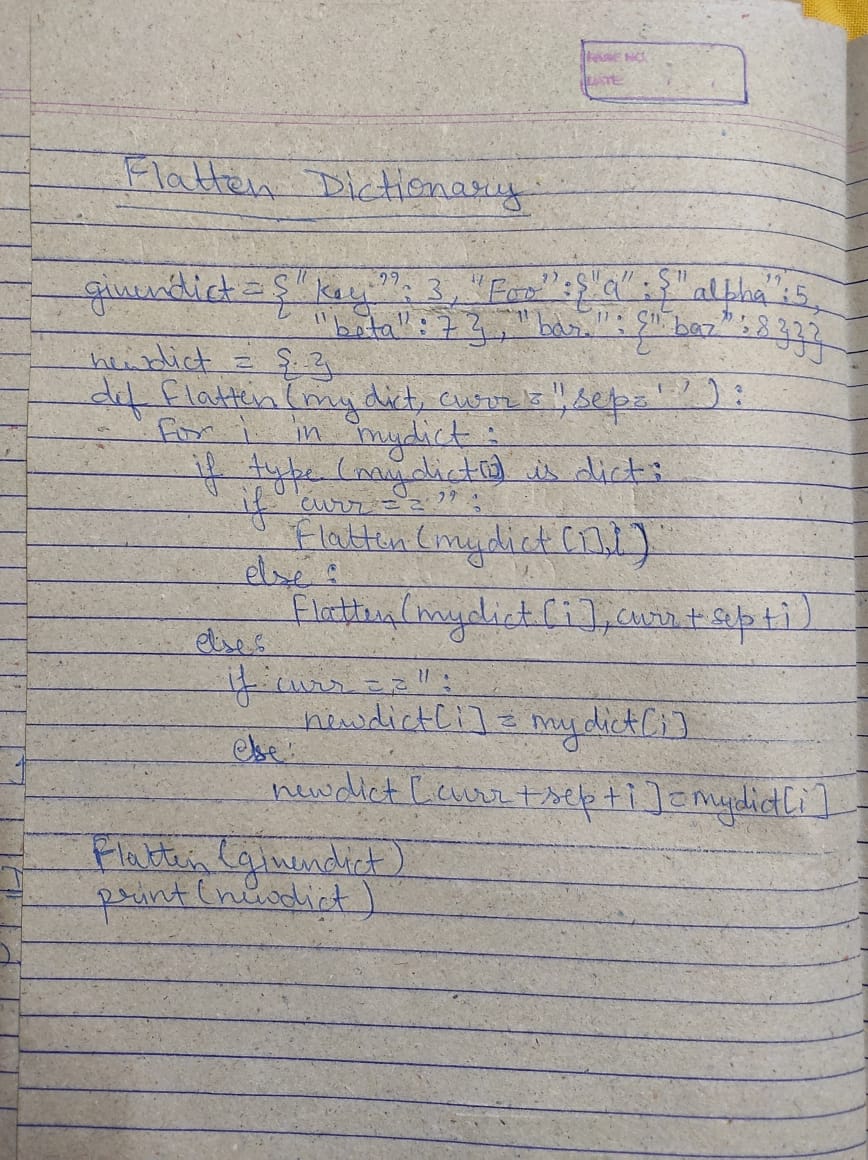 PAGE NO.
DATE
Flatten Dictionary
givendict = {"key": 3, "Foo":{"a":{"alpha":5,
"beta":7}, "bar":{"baz":8}}}
newdict = {}
def flatten(mydict, curr='', sep='.'):
for i in mydict:
if type(mydict[i]) is dict:
if curr=='':
flatten(mydict[i],i)
else:
flatten(mydict[i], curr+sep+i)
else:
if curr=='':
newdict[i] = mydict[i]
else:
newdict[curr+sep+i]=mydict[i]
flatten(givendict)
print(newdict)